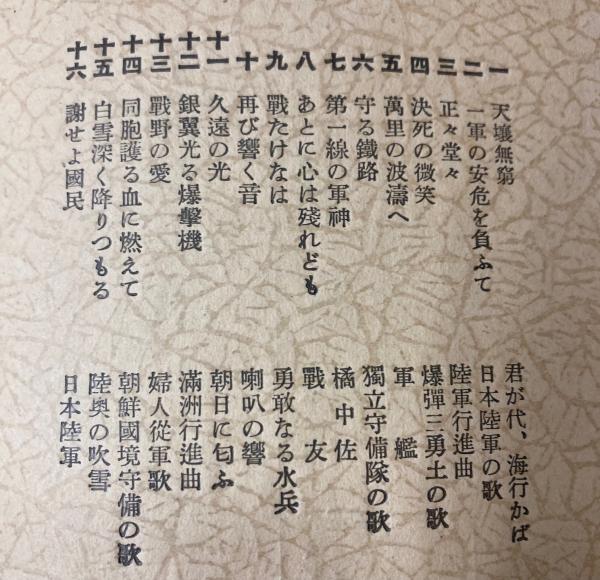 一 天壤無窮 君が代、海行かば
二 一軍の安危を負ふて 日本陸軍の歌
三 正々堂々 陸軍行進曲
四 決死の微笑 爆彈三勇士の歌
五 萬里の波濤へ 軍艦
六 守る鐵路 獨立守備隊の歌
七 第一線の軍神 橘中佐
八 あとに心は殘れども 戰友
九 戰たけなは 勇敢なる水兵
十 再び響く音 喇叭の響
十一 久遠の光 朝日に匂ふ
十二 銀翼光る爆擊機 滿洲行進曲
十三 戰野の愛 婦人從軍歌
十四 同胞護る血に燃えて 朝鮮國境守備の歌
十五 白雪深く降りつもる 陸奧の吹雪
十六 謝せよ國民 日本陸軍